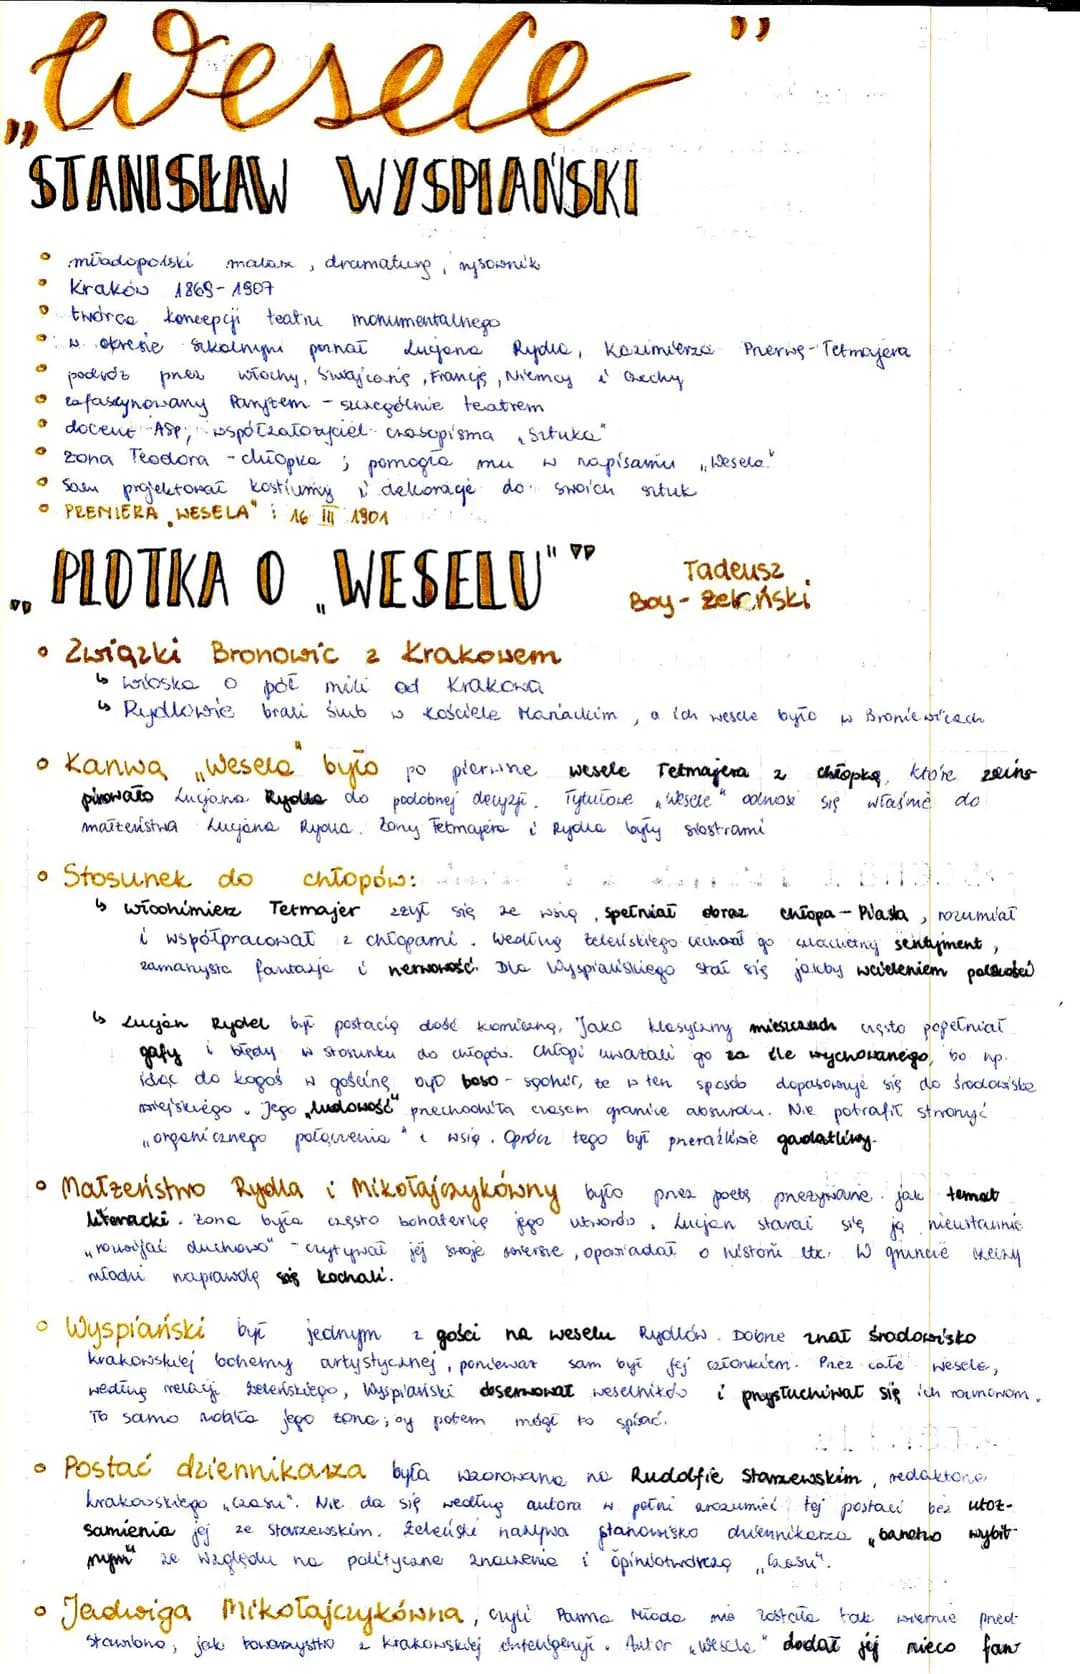 „Wesele”
STANISŁAW WYSPIAŃSKI
• młodopolski malarz, dramaturg, rysownik
• Kraków 1869-1907
• twórca koncepcji teatru monumentalnego
• w okresie szkolnym poznał Lucjana Rydla, Kazimierza Przerwę-Tetmajera
• podróż przez Włochy, Szwajcarię, Francję, Niemcy i Czechy
• zafascynowany Paryżem - szczególnie teatrem
• docent ASP; współzałożyciel czasopisma „Sztuka”
• żona Teodora - chłopka ; pomogła mu w napisaniu „Wesela”
• Sam projektował kostiumy i dekoracje do swoich sztuk
• PREMIERA „WESELA” : 16 III 1901
„PLOTKA O „WESELU””
Tadeusz
Boy-Żeleński
• Związki Bronowic z Krakowem
↳ wioska o pół mili od Krakowa
↳ Rydlowie brali ślub w kościele Mariackim, a ich wesele było w
• Kanwą „Wesela” było po pierwsze wesele Tetmajera z chłopką, które zains-
pirowało Lucjana Rydla do podobnej decyzji. Tytułowe „Wesele” odnosi się właśnie do
małżeństwa Lucjana Rydla. Żony Tetmajera i Rydla były siostrami
• Stosunek do chłopów:
↳ Włodzimierz Tetmajer zżył się ze wsią, spełniał obraz chłopa-Piasta, rozumiał
i współpracował z chłopami. Według Żeleńskiego cechował go szlachetny sentyment,
zamaszysta fantazja i nerwowość. Dla Wyspiańskiego stał się jakby wcieleniem polskości
↳ Lucjan Rydel był postacią dość komiczną. Jako klasyczny mieszczuch często popełniał
gafy i błędy w stosunku do chłopów. Chłopi uważali go za źle wychowanego, bo np.
idąc do kogoś w gościnę, był boso - sądził, że w ten sposób dopasowuje się do środowiska
wiejskiego. Jego „ludowość” przechodziła czasem granice absurdu. Nie potrafił stworzyć
„organicznego połączenia” z wsią. Oprócz tego był przeraźliwie gadatliwy.
• Małżeństwo Rydla i Mikołajczykówny było przez poetę przeżywane jak temat
literacki. Żona była często bohaterką jego utworów. Lucjan starał się ją nieustannie
„rozwijać duchowo” - czytywał jej swoje wiersze, opowiadał o historii itc. W gruncie rzeczy
młodzi naprawdę się kochali.
• Wyspiański był jednym z gości na weselu Rydlów. Dobrze znał środowisko
krakowskiej bohemy artystycznej, ponieważ sam był jej członkiem. Przez całe wesele,
według relacji Żeleńskiego, Wyspiański obserwował weselników i przysłuchiwał się ich rozmowom.
To samo robiła jego żona; by potem mógł to spisać.
• Postać dziennikarza była wzorowana na Rudolfie Starzewskim, redaktorze
krakowskiego „Czasu”. Nie da się według autora w pełni zrozumieć tej postaci bez utoż-
samienia jej ze Starzewskim. Żeleński nazywa stanowisko dziennikarza „bardzo wybit-
nym” ze względu na polityczne znaczenie i opiniotwórczą „Czasu”.
• Jadwiga Mikołajczykówna, czyli Panna Młoda nie została tak wiernie przed-
stawiona, jak towarzystwo z krakowskiej inteligencji. Autor „Wesela” dodał jej nieco fan